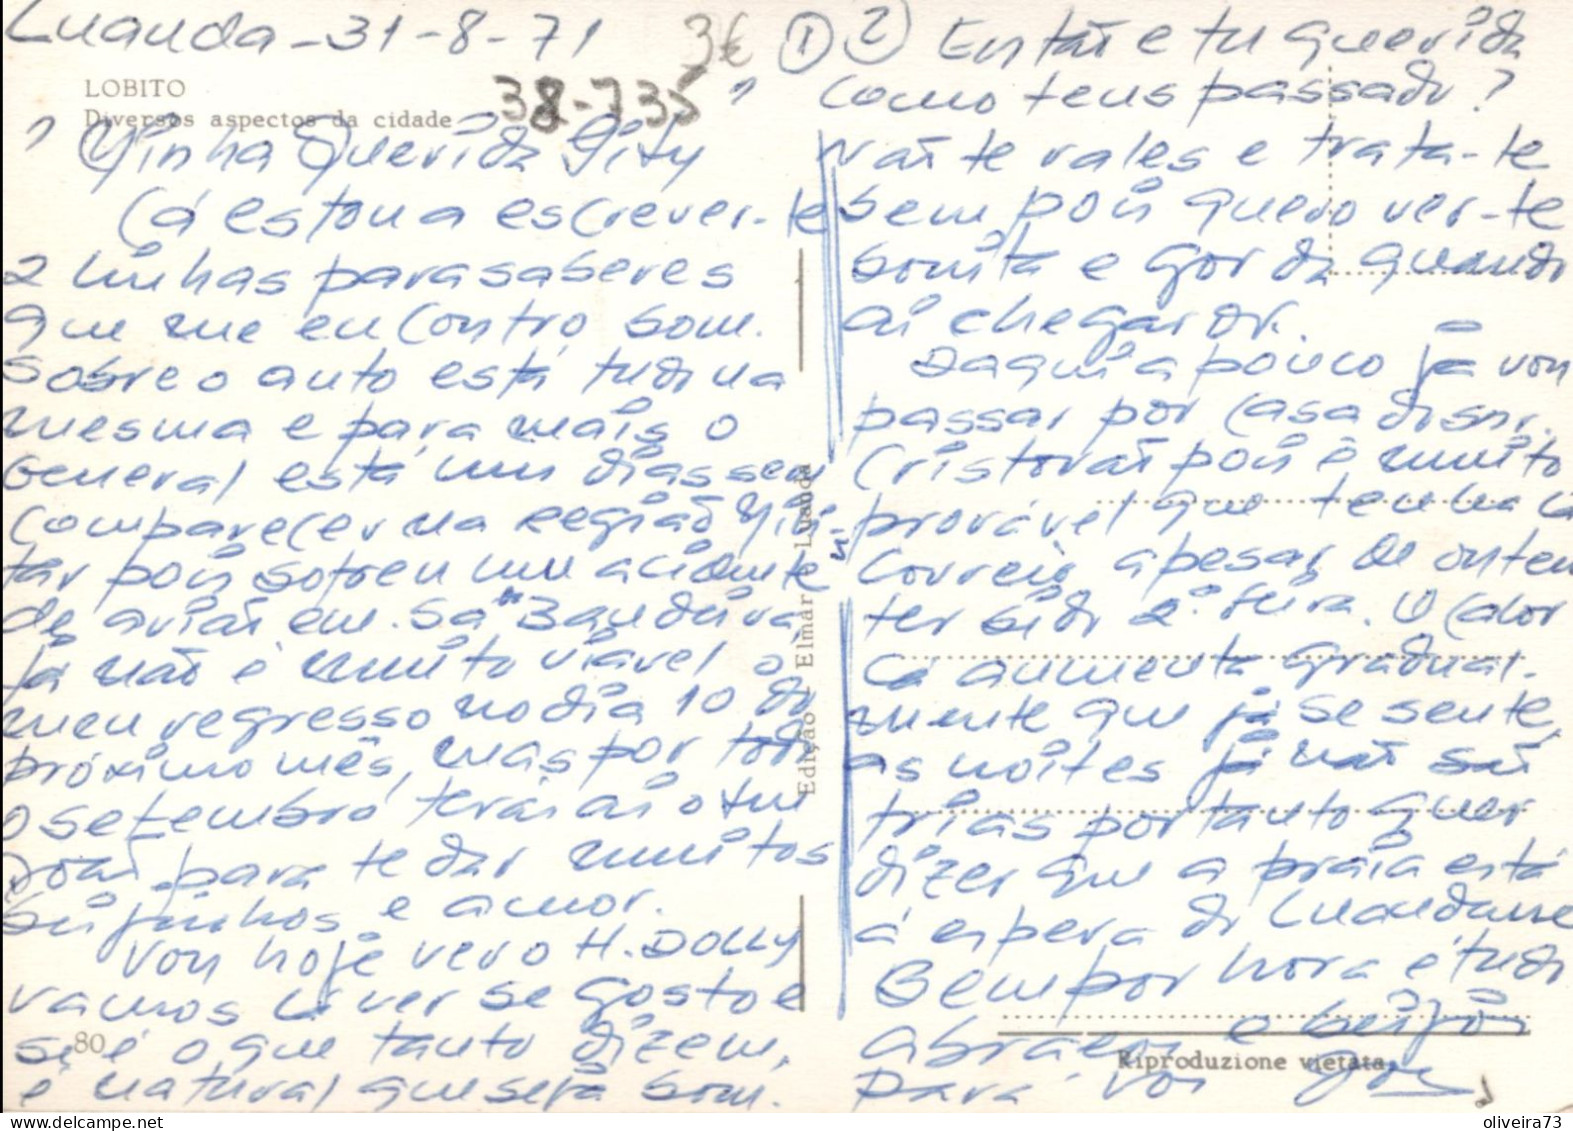 Luanda - 31-8-71
3€
① ②
LOBITO
Diversos aspectos da cidade
38-735
Minha Querida Gity
Cá estou a escrever-te
2 linhas para saberes
que me encontro bom.
Sobre o auto está tudo na
mesma e para mais o
General está um dias sem
comparecer na Região Mili-
tar pois sofreu um acidente
de avião em Sá da Bandeira,
Já não é muito viável o
meu regresso no dia 10 do
próximo mês, mas por todo
o setembro terás aí o teu
João para te dar muitos
beijinhos e amor.
Vou hoje ver o H. DOLLY
vamos ver se gosto e
se é o que tanto dizem,
é natural que seja bom.
80
Edição - Elmar - Luanda
Então e tu querida
como tens passado?
vaís te rales e trata-te
bem pois quero ver-te
bonita e gorda quando
aí chegar
Daqui a pouco já vou
passar por casa do snr.
Cristovão pois é muito
provável que tenha lá
correio, apesar de ontem
ter sido 2ª feira. O calor
cá aumenta gradual-
mente que já se sente,
as noites já não são
frias portanto quer
dizer que a praia está
á espera do Luandense
Bem por hora é tudo
abraços e beijos
para vos
Riproduzione vietata
oliveira73